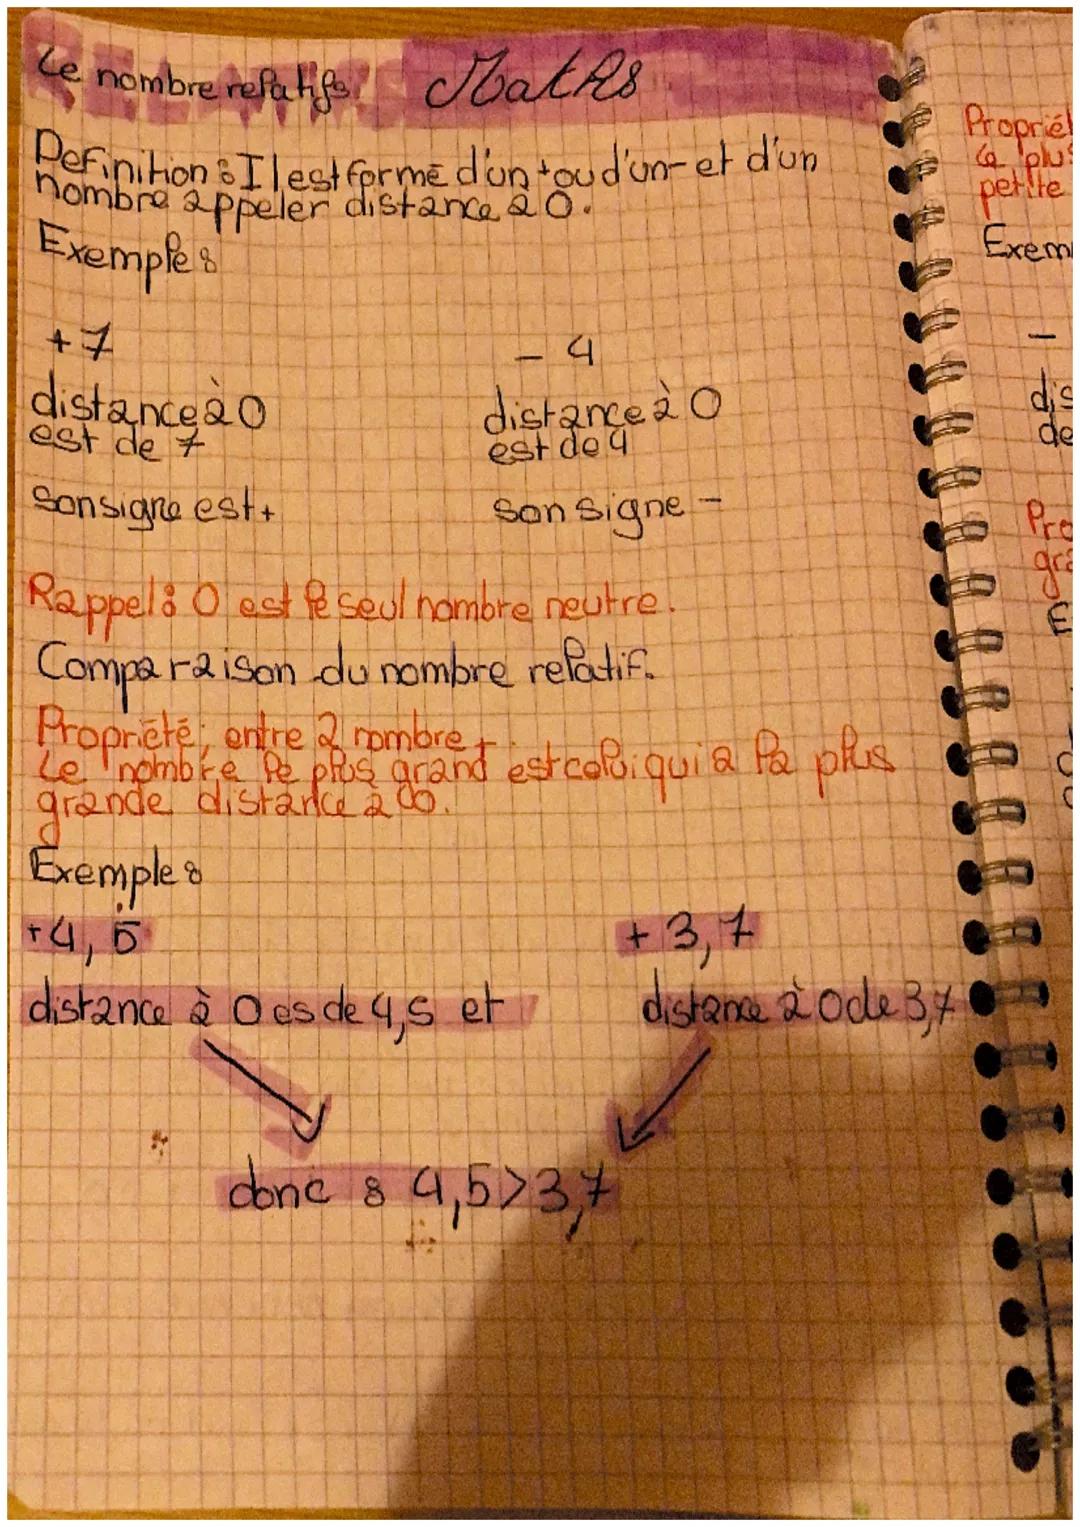 Le nombre relatifs Maths
Definition : Il est formé d'un + ou d'un - et d'un
nombre appeler distance à 0.
Exemple :
+7
- 4
distance à 0
est de 7
distance à 0
est de 4
son signe est +
son signe -
Rappel : 0 est le seul nombre neutre.
Comparaison du nombre relatif.
Propriété ; entre 2 nombre +.
Le nombre le plus grand est celui qui a la plus
grande distance à 0.
Exemple :
+4,5
+ 3,7
distance à 0 es de 4,5 et
distance à 0 de 3,7
donc : 4,5>3,7
Propriét
Le plus
petite
Exem
-
dis
de
Pro
gra
E